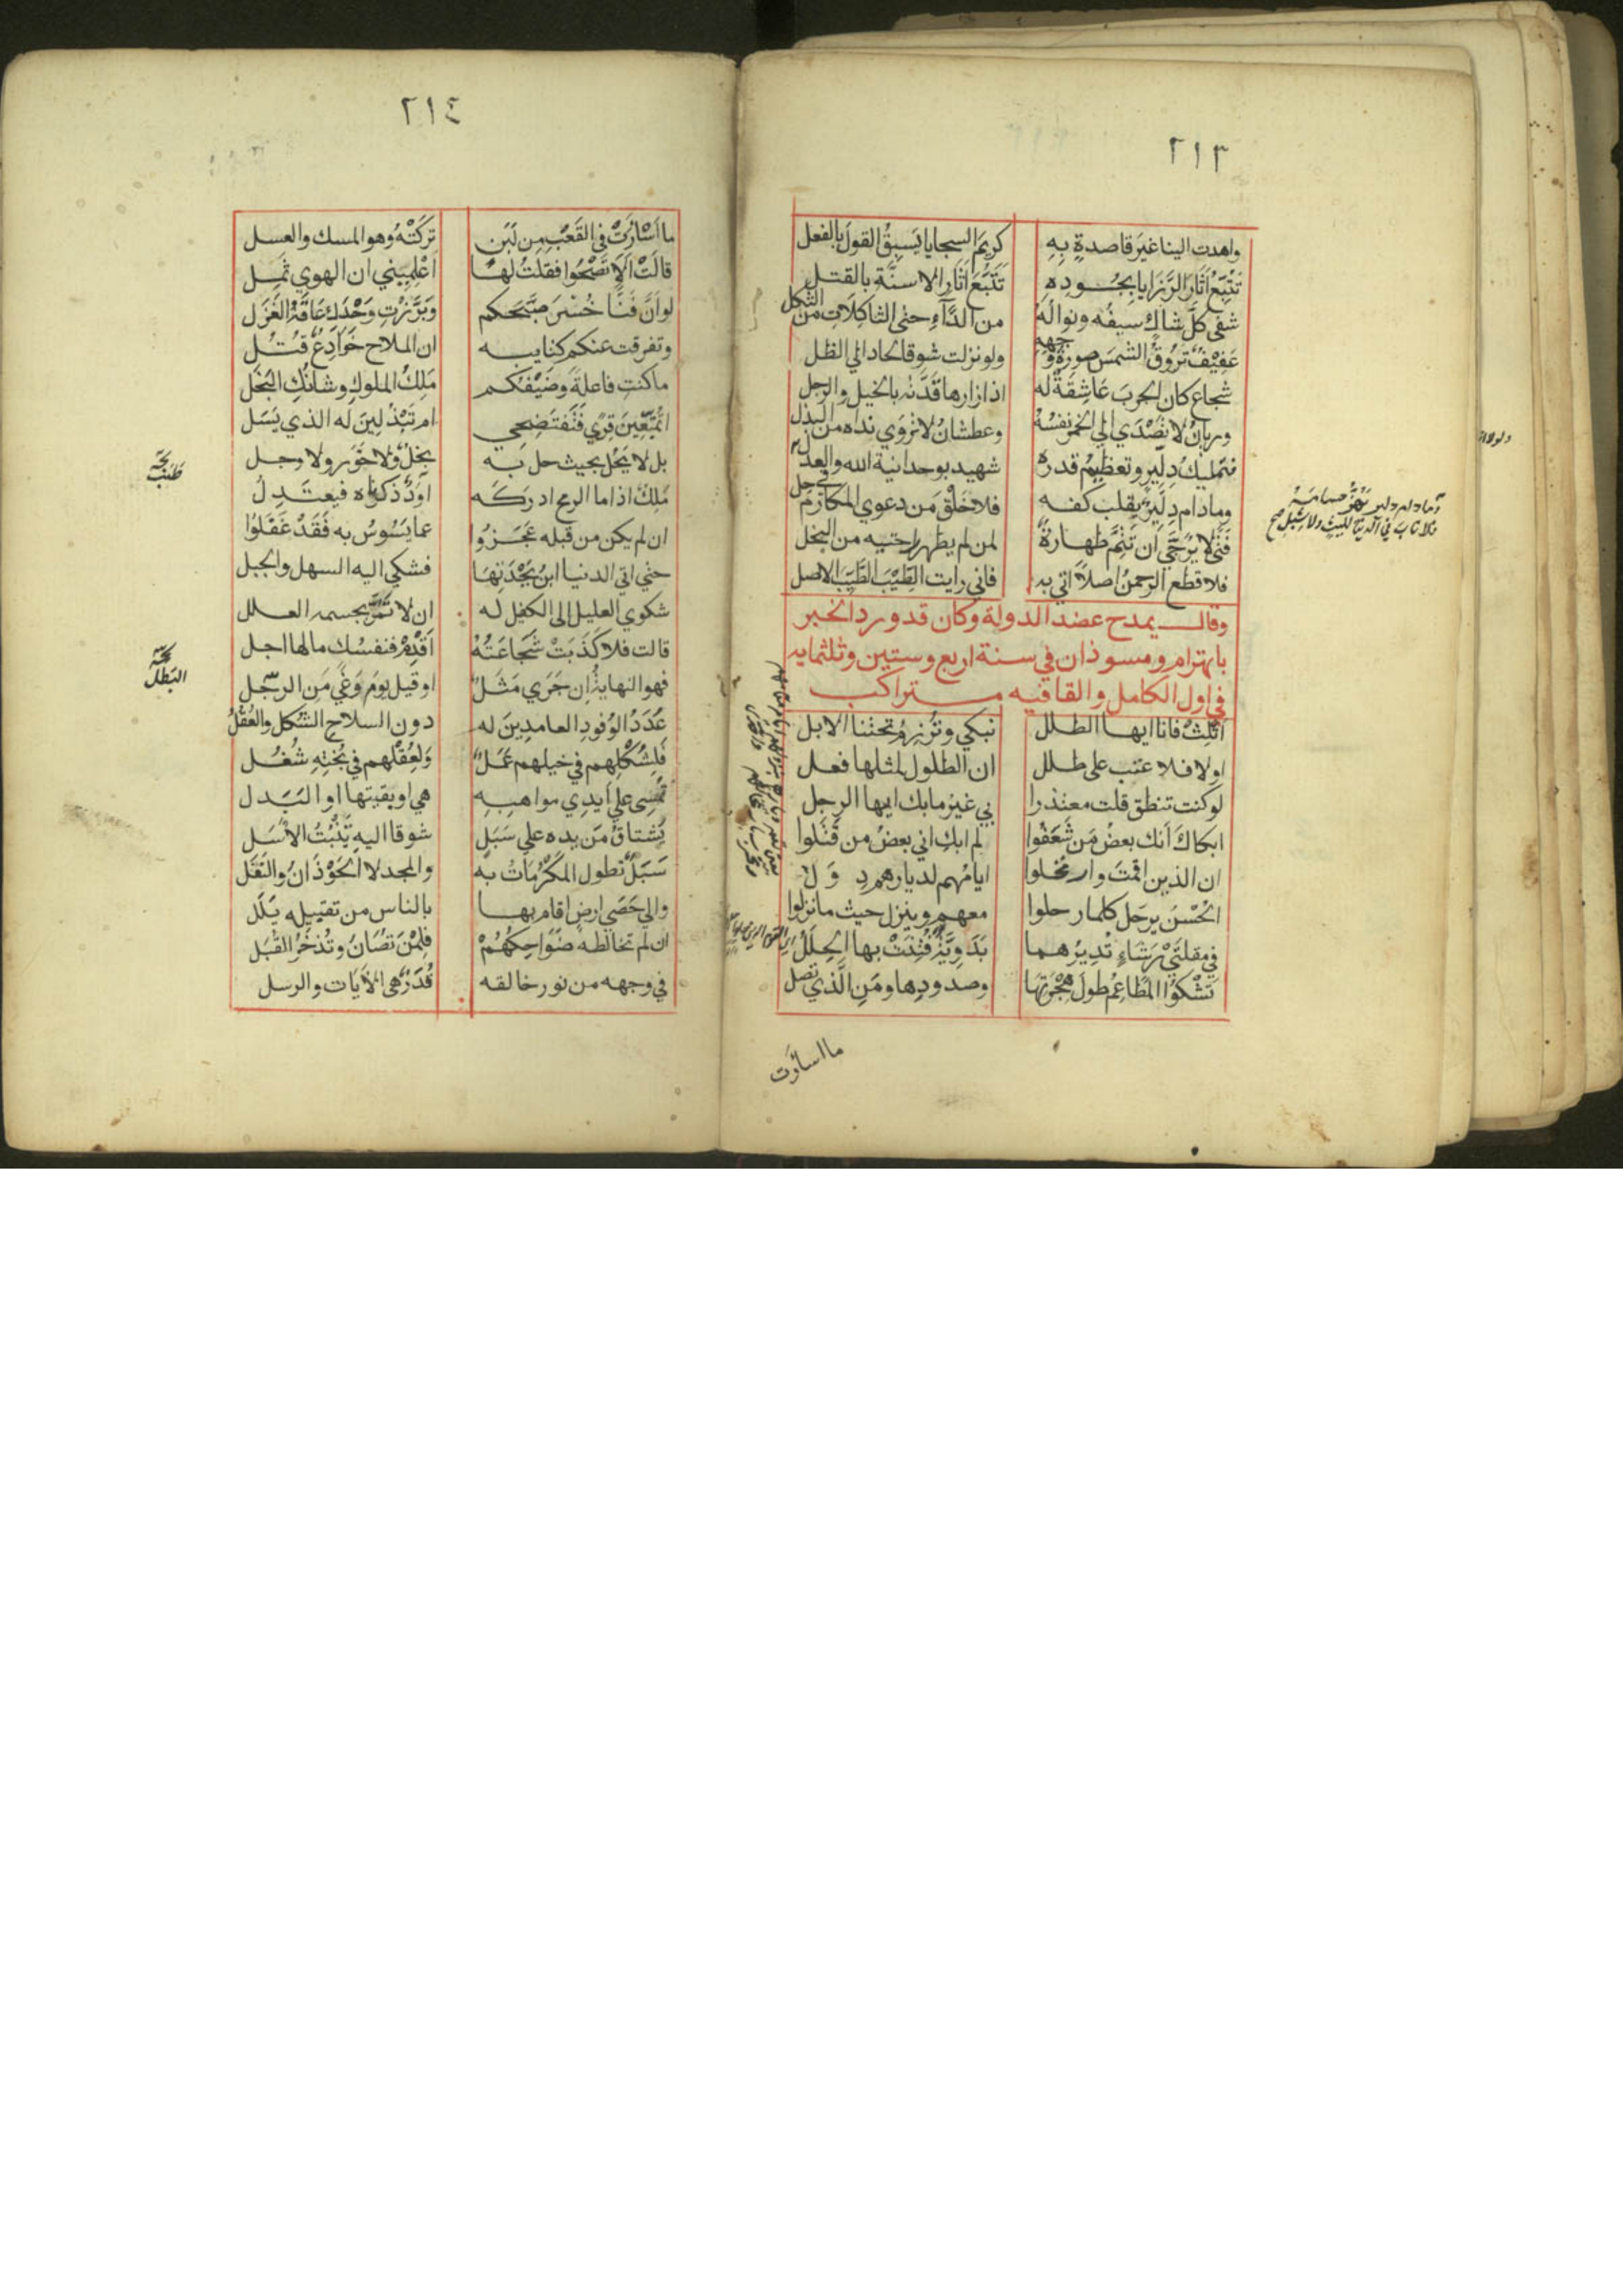 ٢١٣
واهدت الينا غيرَ قاصدةٍ بِهِ كريمَ السجايا يَسبِقُ القولَ بالفعل
تَتَبَّعُ اَثَارَ الرَّزَايا بِجُودِهِ تَتَبُّعَ اَثَارِ الاسنَّةِ بالقتل
شفى كلَّ شاكٍ سيفُه ونوالُهُ من الدَّآءِ حتى الثاكِلَاتِ من الثكل
عَفِيْفٌ تَرُوقُ الشمسَ صورةُ وَجهِهِ ولو نزلت شوقا لحاد الي الظل
شجاع كان الحربَ عَاشِقَةٌ له اذا زارها فَدَّتْه بالخيل والرجل
وريانُ لا تَصْدَي الي الخمر نفسُهُ وعطشانُ لا تروَي نداه من البذل
فتمليكُ دِلِّيرٍ وتعظيمُ قدره شهيد بوحدانية الله والعدل
وما دام دِلِّيرٌ يقلب كفه فلا خَلْقَ مَن دعوي المكارم في حل
فَتًى لا يُرَجَّي اَن تَتِمَّ طَهارةٌ لمن لم يطهر راحتيه من البخل
فلا قطع الرحمنُ اصلاً اتي به فاني رايت الطَّيِّبَ الطَّيِّبَ الاصل
وقالــ يمدح عضد الدولة وكان قد ورد الخبر
بانهزام ومسوذان في سنة اربع وستين وثلثمايه
في اول الكامل والقافيه متراكب
اثلِثْ فانا ايها الطلل نبكي وتُرْزِمُ تحتنا الابل
اولا فلا عتب على طلل ان الطلول لمثلها فعل
لو كنت تنطق قلت معتذرا بي غيرُ ما بك ايها الرجل
ابكاكَ اَنك بعضُ مَن شَعَفُوا لم ابكِ اني بعضُ من قَتَلوا
ان الذين اقمتَ وارتحلوا ايامُهم لديارهم دِ وَ ل
الحُسْنُ يرحَل كلما رحلوا معهم وينزل حيث ما نزلوا
في مقلتَيْ رَشَاءٍ تُدِيرُهما بَدَوِيَّةٌ فُتِنَتْ بها الحِلَلُ
تَشْكوُا المَطَاعِمُ طولَ هِجْرَتِهَا وصدودِها ومَنِ الَّذي تصل
ما اسأرت
٢١٤
ما اَسْأرَتْ في القَعْبِ مِن لَبَنٍ تركَتْهُ وهو المسك والعسل
قالَتْ اَلَا تَصْحُوا فقلتُ لها اَعْلِمِيْنِي ان الهوي ثَمِل
لو اَنَّ فَنَّا خُسْرَ صَبَّحَكم وبَرَزْتِ وَحْدَكِ عَاقَهُ الغَزَل
وتفرقت عنكم كتايبه ان الملاح خَوَادِعٌ قُتُل
ما كنتِ فاعلةً وضَيْفُكم مَلِكُ الملوكِ وشانُكِ البُخُل
اتُمَتِّعِينَ قِرًي فَتَفتَضِحِي ام تَبْذُلِينَ لَه الذي يَسَل
بل لا يَحُل بحيث حل بَه بُخْلٌ ولا خَوَر ولا وجل
مَلِكٌ اذا ما الرمح ادركَه اَوَدٌ ذكرناه فيعتدِلُ
ان لم يكن من قبله عَجَزُوا عما يَسُوسُ به فَقَدْ غَفَلُوا
حتي اتي الدنيا ابنُ بَجْدَتِهَا فشكي اليه السهل والجبل
شكوي العليل الى الكفيل له ان لا تَمُرَّ بجسمه العلل
قالت فلا كَذَبَتْ شَجَاعَتُهُ اَقْدِمْ فنفسُك ما لها اجل
فهو النهايةُ اِن جَرَي مَثَلٌ او قيل يومَ وَغًي مَنِ الرجل
عُدَدُ الوُفُودِ العامدِينَ له دون السلاح الشُّكل والعُقُلُ
فَلِشُكْلِهم في خيلهم عَمَلٌ وَلِعُقْلِهم في بُخْتِهِ شُغُل
تُمْسِى علي اَيدِي مواهبِهِ هي او بقيتها او البَدل
يُشتاقُ مَن يده علي سَبَلٍ شوقا اليه يَنْبُتُ الاَسَل
سَبَلٌ تطول المَكْرُماتُ به والمجد لا الحَوْذَانُ والنَّفَل
والي حَصَي ارض اقام بها بالناس من تقبيله يَلَل
ان لم تخالطه ضَوَاحِكُهُمْ فلِمَنْ تصَانُ وتُذخَرُ القُبَل
في وجهه من نور خالقه قُدَرٌ هى الاٰيات والرسل
البَطَلُ